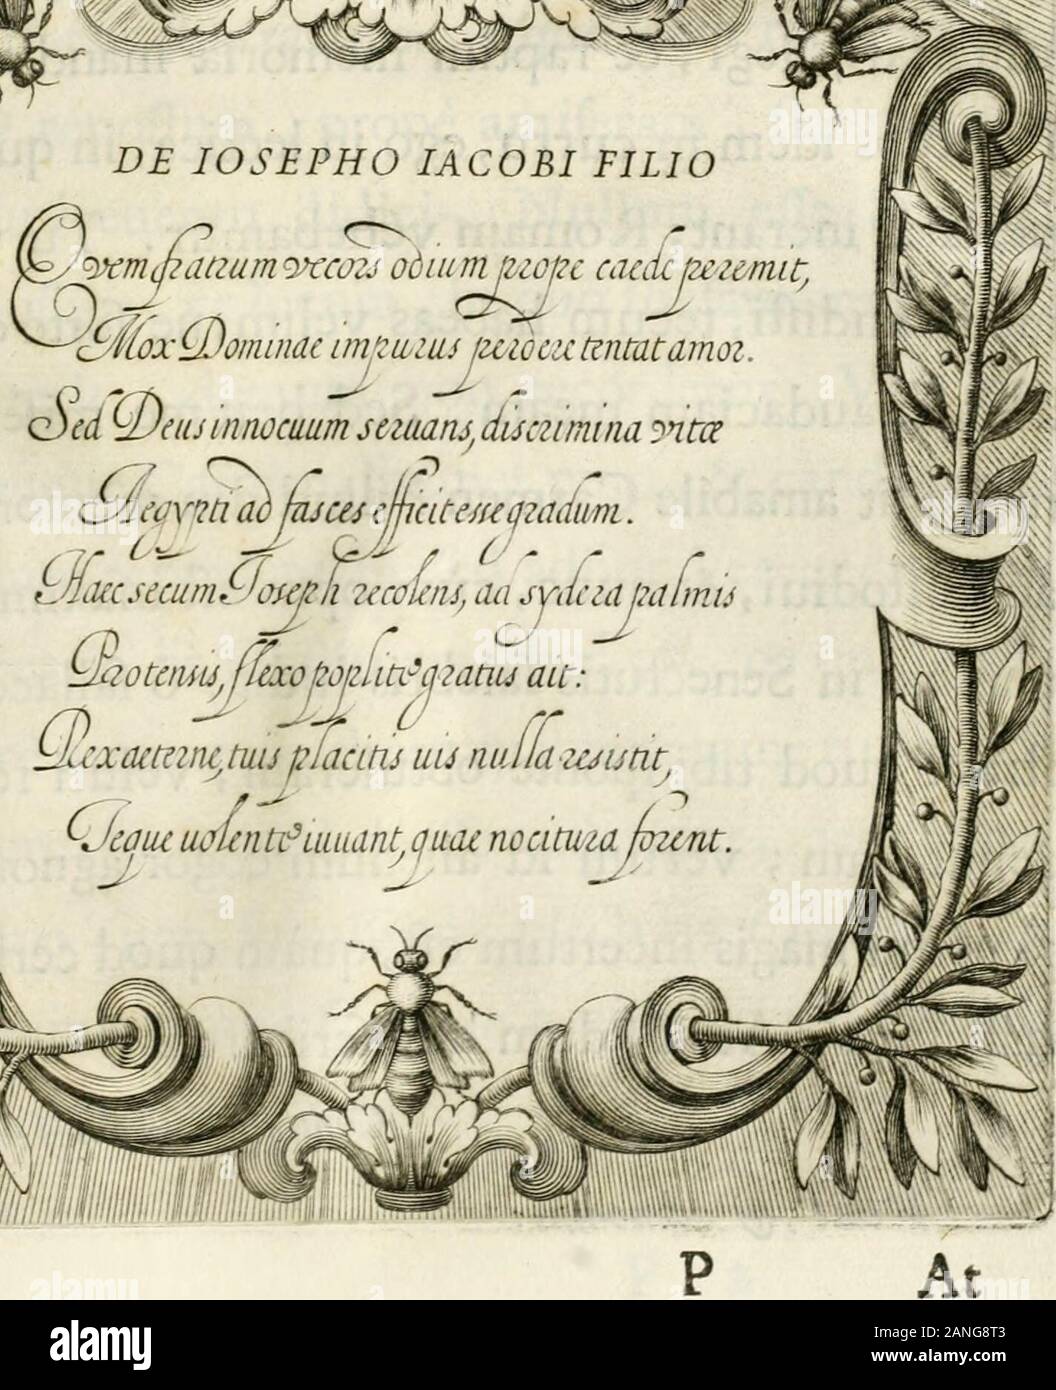 DE IOSEPHO IACOBI FILIO
Quem fratrum vecors odium prope caede peremit,
Mox Dominae impurus perdere tentat amor.
Sed Deus innocuum seruans, discrimina vitæ
Aegypti ad fasces efficit esse gradum.
Haec secum Joseph recolens, ad sydera palmis
Protensis, flexo poplite gratus ait:
Rex aeterne, tuis placitis uis nulla resistit,
Teque uolente iuuant, quae nocitura forent.
P At
alamy
Image ID: 2ANG8T3
www.alamy.com